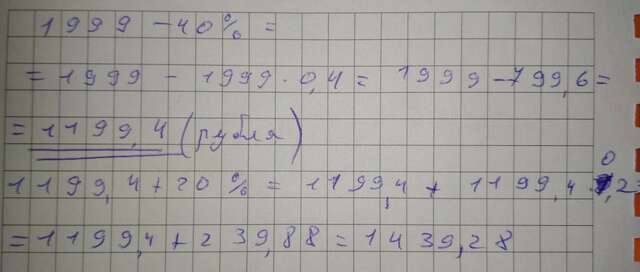 1999 - 40% =
= 1999 - 1999 · 0,4 = 1999 - 799,6 =
= 1199,4 (рубля)
1199,4 + 20% = 1199,4 + 1199,4 · 0,2
= 1199,4 + 239,88 = 1439,28